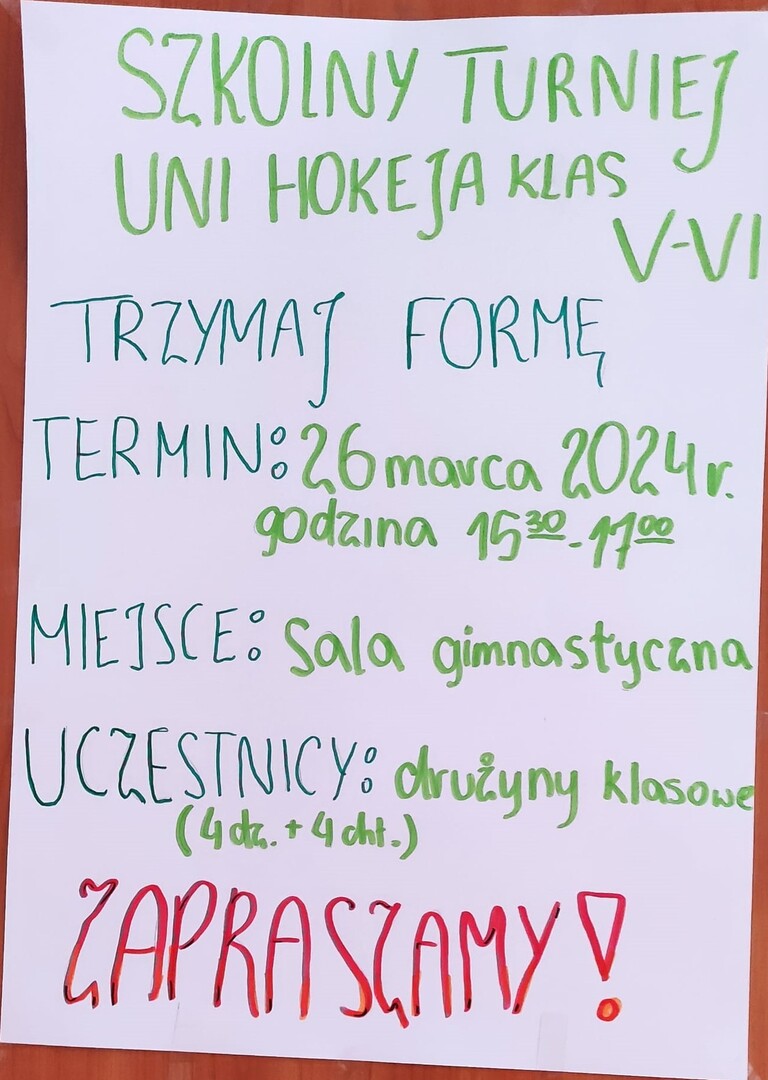 SZKOLNY TURNIEJ
UNI HOKEJA KLAS
V-VI
TRZYMAJ FORMĘ
TERMIN: 26 marca 2024 r.
godzina 15³⁰-17⁰⁰
MIEJSCE: Sala gimnastyczna
UCZESTNICY: drużyny klasowe
(4 dz. + 4 chł.)
ZAPRASZAMY!